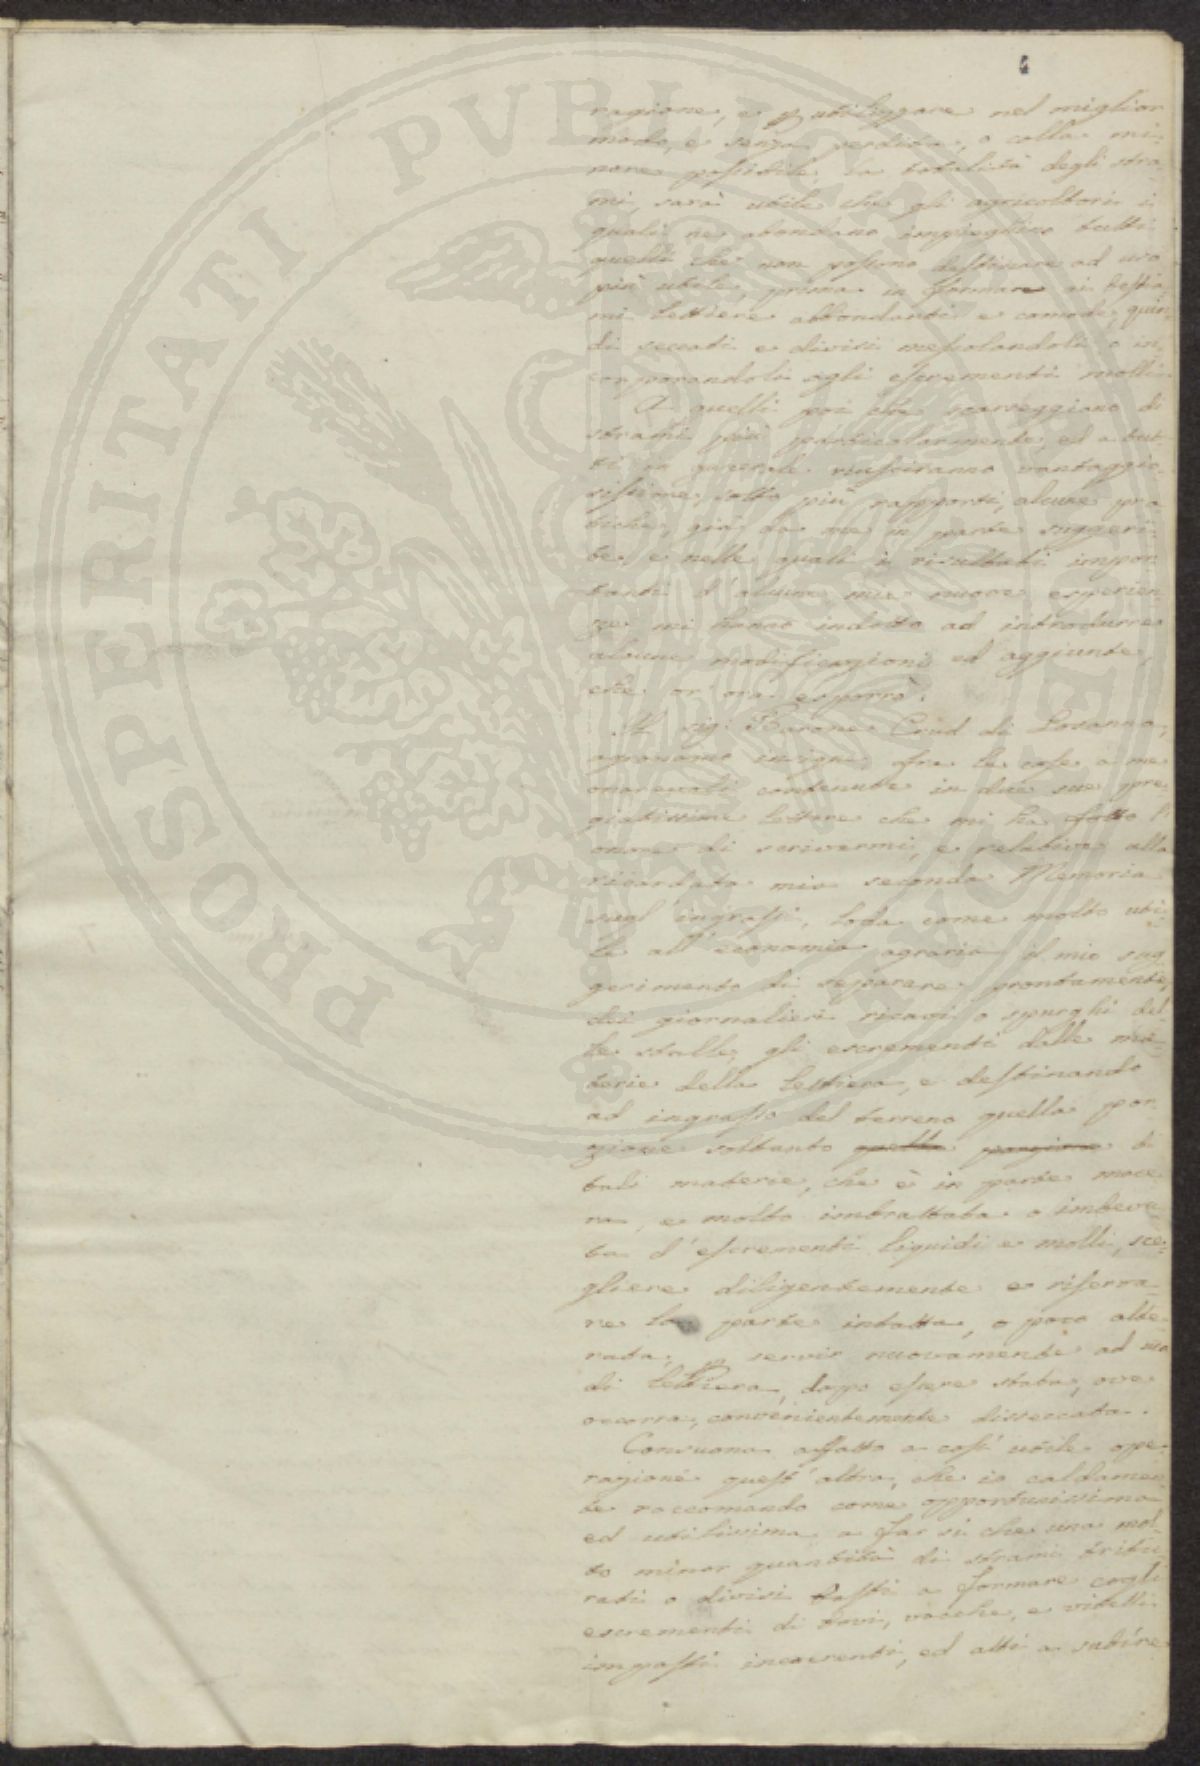 4
ragione, e p utilizzare nel miglior
modo, e senza perdita, o colla mi-
nore possibile, la totalità degli stra-
mi, sarà utile che gli agricoltori i
quali ne abondano impieghino tutti
quelli che non possono destinare ad uso
più utile, prima in formare ai bestia-
mi lettiere abbondanti e comode, quin-
di seccati e divisi mescolandoli o in-
corporandoli agli escrementi molli.
A quelli poi che scarseggiano di
strami più particolarmente, ed a tut-
ti in generale riusciranno vantaggio-
sissime, sotto più rapporti, alcune pra-
tiche, già da me in parte suggeri-
te, e nelle quali i risultati impor-
tanti d'alcune mie nuove esperien-
ze mi hanno indotto ad introdurre
alcune modificazioni ed aggiunte,
che or ora esporrò.
Il sig. Barone Crud di Losanna,
agronomo insigne fra le cose a me
onorevoli contenute in due sue pre-
giatissime lettere che mi ha fatto l'
onore di scrivermi, e relative alla
ricordata mia seconda Memoria
sugl'ingrassi, loda come molto uti-
le all'economia agraria il mio sug-
gerimento di separare prontamente,
dai giornalieri ricavi o spurghi del-
le stalle, gli escrementi dalle ma-
terie della lettiera, e destinando
ad ingrasso del terreno quella por-
zione soltanto quella porzione di
tali materie, che è in parte mace-
ra, e molto imbrattata o imbevu-
ta d'escrementi liquidi e molli, sce-
gliere diligentemente e riserva-
re la parte intatta, o poco alte-
rata, p servir nuovamente ad uso
di lettiera, dopo essere stata, ove
occorra, convenientemente disseccata.
Consuona affatto a così utile ope-
razione quest'altra, che io caldamen-
te raccomando come opportunissima
ed utilissima a far sì che una mol-
to minor quantità di strami tritu-
rati o divisi basti a formare cogli
escrementi di bovi, vacche, e vitelli
impasti incoerenti, ed atti a subire
PROSPERITATI PVBLICAE AVGENDAE